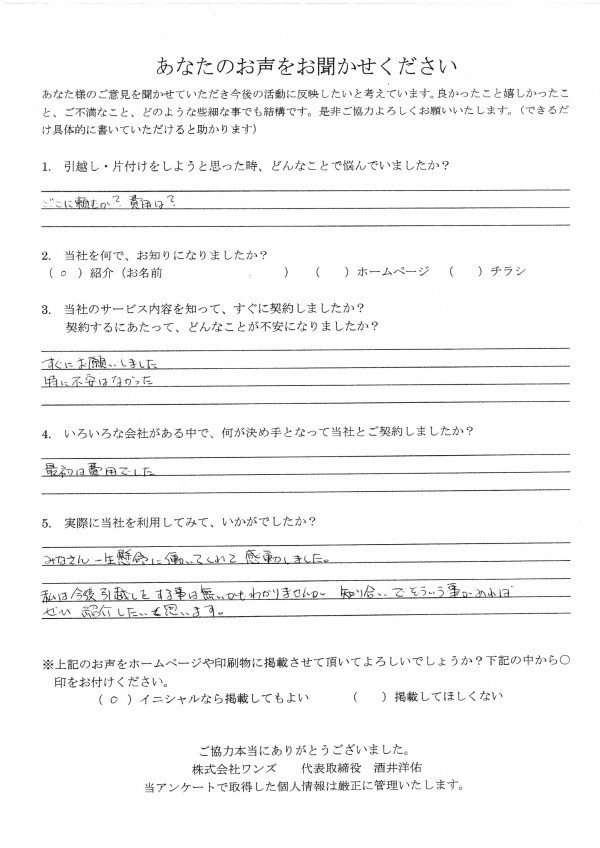 あなたのお声をお聞かせください
あなた様のご意見を聞かせていただき今後の活動に反映したいと考えています。良かったこと嬉しかったこ
と、ご不満なこと、どのような些細な事でも結構です。是非ご協力よろしくお願いいたします。（できるだ
け具体的に書いていただけると助かります）
1. 引越し・片付けをしようと思った時、どんなことで悩んでいましたか？
どこに頼むか？費用は？
2. 当社を何で、お知りになりましたか？
（ ○ ）紹介（お名前 ） （ ）ホームページ （ ）チラシ
3. 当社のサービス内容を知って、すぐに契約しましたか？
契約するにあたって、どんなことが不安になりましたか？
すぐにお願いしました
特に不安はなかった
4. いろいろな会社がある中で、何が決め手となって当社とご契約しましたか？
最初は費用でした
5. 実際に当社を利用してみて、いかがでしたか？
みなさん一生懸命に働いてくれて感動しました。
私は今後引越しをする事は無いかもわかりませんが 知り合いでそういう事があれば
ぜひ 紹介したいと思います。
※上記のお声をホームページや印刷物に掲載させて頂いてよろしいでしょうか？下記の中から○
印をお付けください。
（ ○ ）イニシャルなら掲載してもよい （ ）掲載してほしくない
ご協力本当にありがとうございました。
株式会社ワンズ 代表取締役 酒井洋佑
当アンケートで取得した個人情報は厳正に管理いたします。